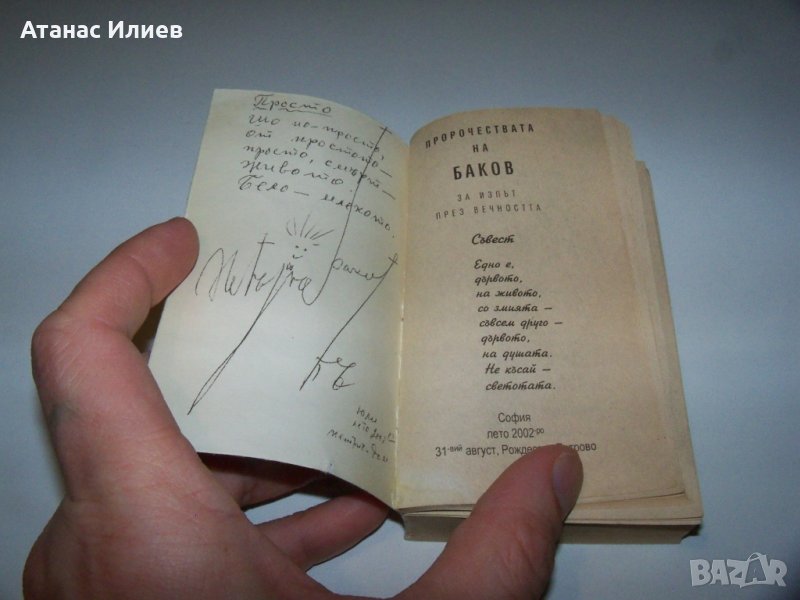 Атанас Илиев
Просто
що по-просто,
от простото –
просто, смърт –
живота!
Бяло – млякото.
Петър
баков
ПРОРОЧЕСТВАТА
НА
БАКОВ
ЗА ИЗПЪТ
ПРЕЗ ВЕЧНОСТТА
Съвест
Едно е,
дървото,
на живото,
со змията –
съвсем друго –
дървото,
на душата.
Не късай –
светотата.
София
лето 2002-ро
31-вий август,
BAZAR